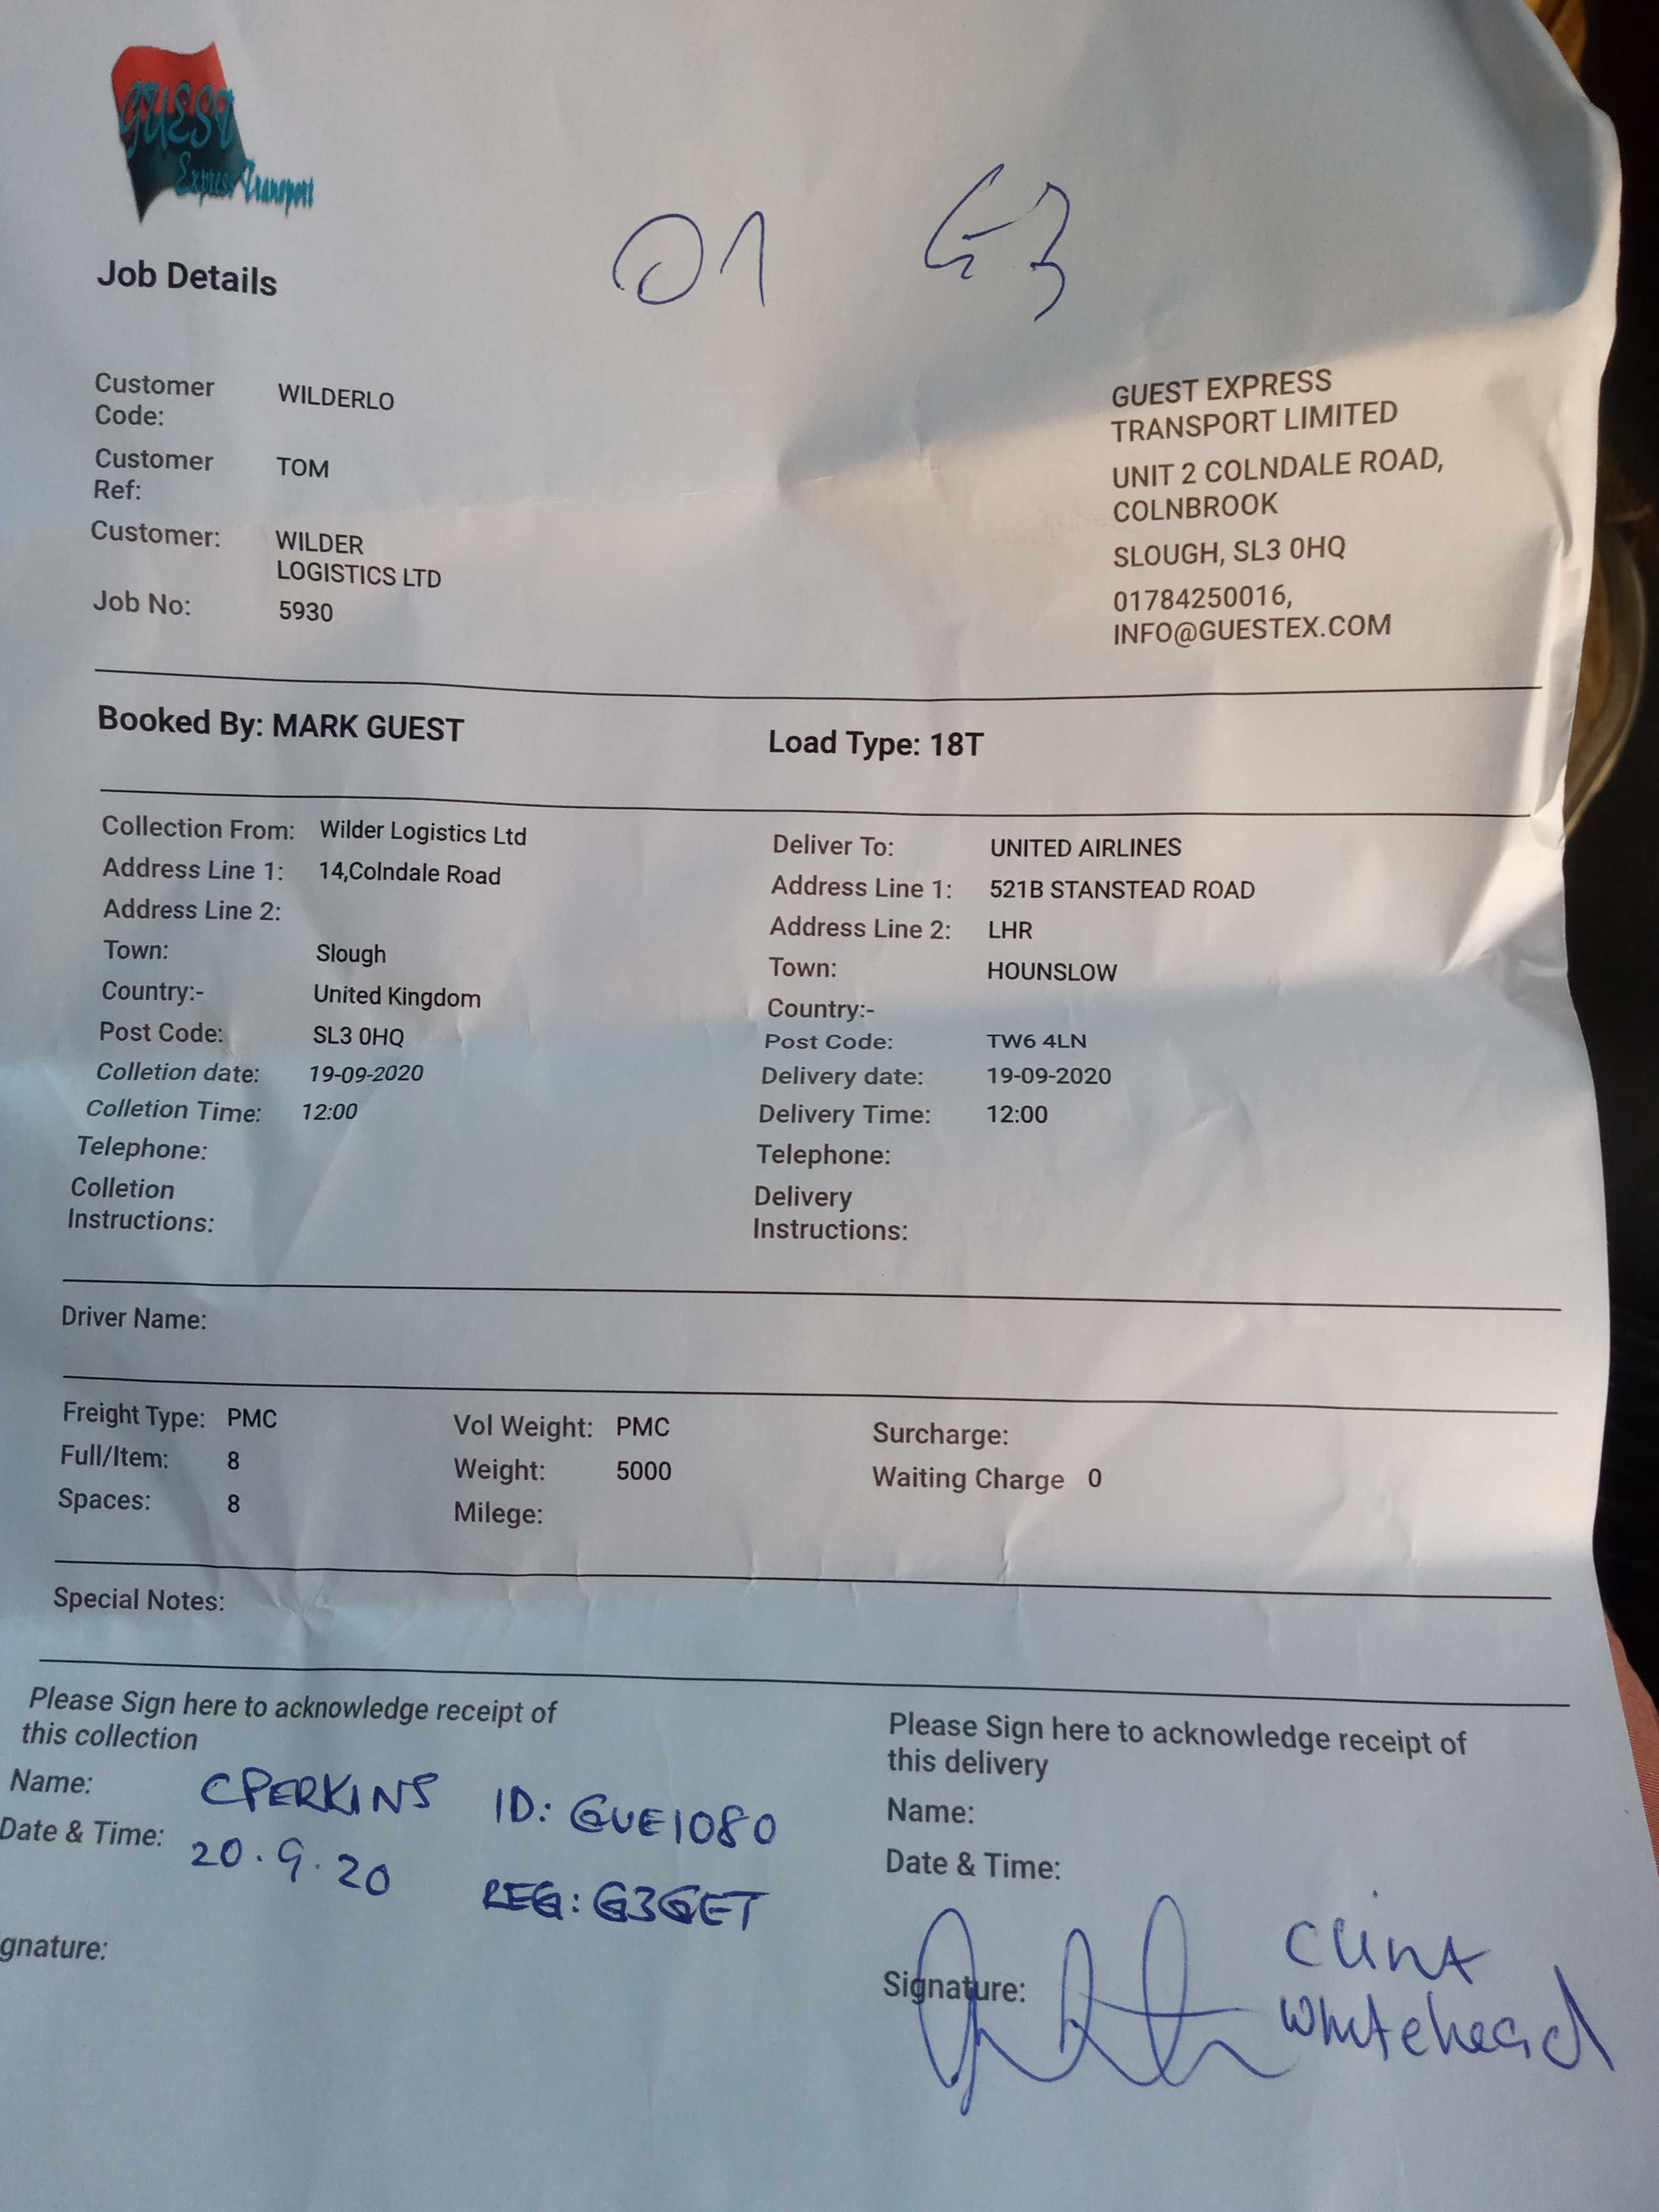 GUEST
Express Transport
01 G3
Job Details
Customer Code: WILDERLO
Customer Ref: TOM
Customer: WILDER LOGISTICS LTD
Job No: 5930
GUEST EXPRESS
TRANSPORT LIMITED
UNIT 2 COLNDALE ROAD,
COLNBROOK
SLOUGH, SL3 0HQ
01784250016,
INFO@GUESTEX.COM
Booked By: MARK GUEST
Load Type: 18T
Collection From: Wilder Logistics Ltd
Address Line 1: 14,Colndale Road
Address Line 2:
Town: Slough
Country:- United Kingdom
Post Code: SL3 0HQ
Colletion date: 19-09-2020
Colletion Time: 12:00
Telephone:
Colletion
Instructions:
Deliver To: UNITED AIRLINES
Address Line 1: 521B STANSTEAD ROAD
Address Line 2: LHR
Town: HOUNSLOW
Country:-
Post Code: TW6 4LN
Delivery date: 19-09-2020
Delivery Time: 12:00
Telephone:
Delivery
Instructions:
Driver Name:
Freight Type: PMC
Full/Item: 8
Spaces: 8
Vol Weight: PMC
Weight: 5000
Milege:
Surcharge:
Waiting Charge 0
Special Notes:
Please Sign here to acknowledge receipt of
this collection
Name: CPERKINS ID: GUE1080
Date & Time: 20.9.20 REG: G3GET
gnature:
Please Sign here to acknowledge receipt of
this delivery
Name:
Date & Time:
Signature: Clint
Whitehead